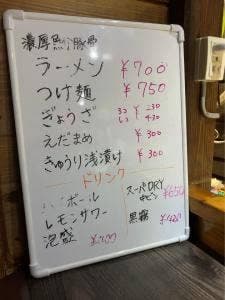 濃厚魚介豚骨
ラーメン ¥700
つけ麺 ¥750
ぎょうざ 3コ ¥230
5コ 430
えだまめ ¥300
きゅうり浅漬け ¥300
ドリンク
ボール
スーパーDRY 中ビン ¥650
レモンサワー
黒霧 ¥420
泡盛